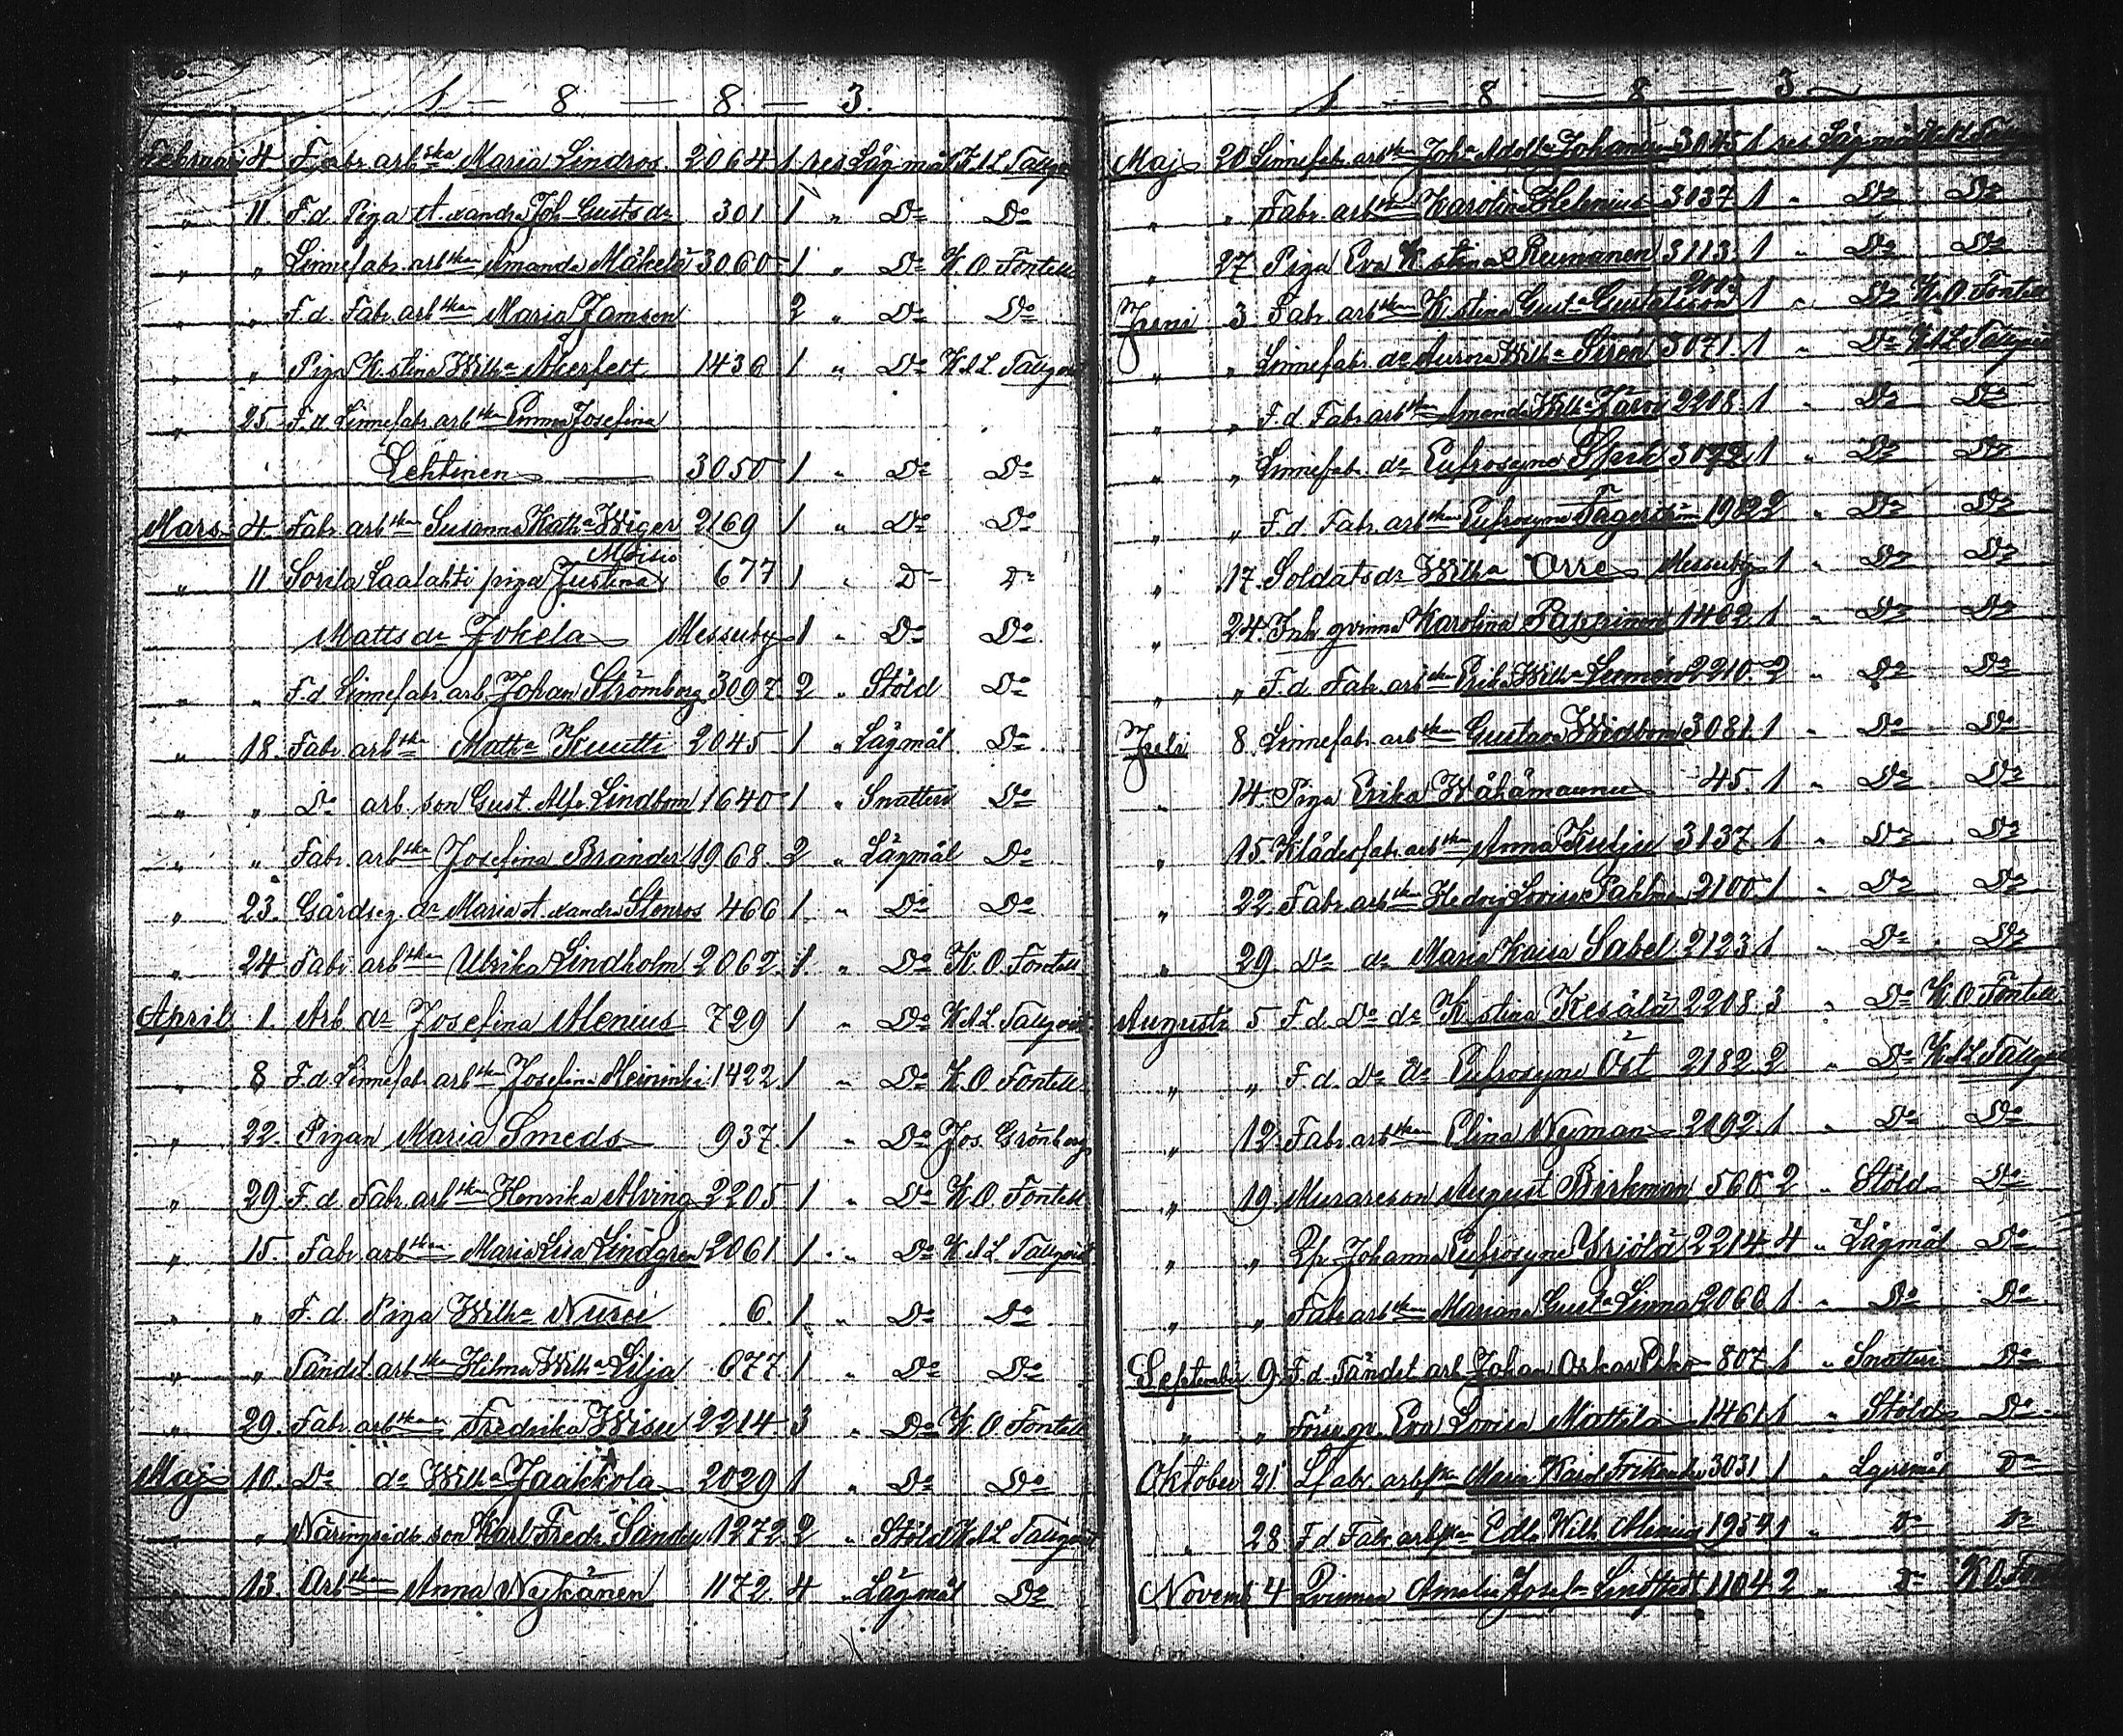 1 — 8 — 8 — 3.
Februari 4. Fabr. arb:ska Maria Lindros 2064 1 res Lägmål K A L Tallqv
" 11. F.d. Piga A.xandra Joh. Gusts dr 301 1 " Do Do
" " Linnefabr. arb:ska Amanda Mäkelä 3060 1 " Do K. O. Fontell
" " F.d. Fabr. arb:ska Maria Jamsen 2 " Do Do
" " Piga K.stina Wilh:a Åkerfelt 1436 1 " Do K A L Tallqvist
" 25. F.d. Linnefabr. arb:ska Emma Josefina
Lehtinen 3050 1 " Do Do
Mars 4. Fabr. arb:ska Susanna Kath:a Wiger 2169 1 " Do Do
Moisio
" 11 Sorila Laalahti piga Justina 677 1 " Do Do
Matts dr Jokela Messuby 1 " Do Do
" " F.d. Linnefabr. arb. Johan Strömberg 3097. 2 " Stöld Do
" 18. Fabr. arb:ska Math:a Knutti 2045 1 " Lägmål Do
" " Do arb. son Gust. Alf. Lindbom 1640 1 " Snatteri Do
" " Fabr. arb:ska Josefina Brander 1968. 2 " Lägmål Do
" 23. Gårdseg. dr Maria A.xandra Stenros 466 1 " Do Do
" 24. Fabr. arb:ska Ulrika Lindholm 2062. 1. " Do K. O. Fontell
April 1. Arb. dr Josefina Alenius 729 1 " Do K A L Tallqvist
" 8 F.d. Linnefabr. arb:ska Josefina Heininki 1422 1 " Do K. O. Fontell
" 22. Pigan Maria Smeds 937. 1 " Do Jos. Grönberg
" 29. F.d. Fabr. arb:ska Henrika Alving 2205 1 " Do K. O. Fontell
" 15. Fabr. arb:ska Maria Lisa Lindgren 2061 1 " Do K A L Tallqvist
" " F.d. Piga Wilh:a 6. 1 " Do Do
" " Tändst. arb:ska Hilma Wilh:a Lilja 677. 1 " Do Do
" 29. Fabr. arb:ska Fredrika Wisu 2214. 3 " Do K. O. Fontell
Maj 10. Do do Wilh:a Jaakkola 2029 1 " Do Do
" " Näringsidk. son Karl Fredr. Sandel 1272. 2 " Stöld K A L Tallqvist
" 13. Arb:ska Anna Nykänen 1172. 4 " Lägmål Do
1 — 8 — 8 — 3
Maj 20 Linnefabr. arb:ska Joh:a Adolf:a Johansson 3045 1 res Lägmål K A L
" " Fabr. arb:ska Karolina Helenius 3037 1 " Do Do
" 27. Piga Eva K.stina Reumanen 3113. 1 " Do Do
Juni 3 Fabr. arb:ska K.stina Gust:a Gustafsson 1 " Do K. O. Fontell
" " Linnefabr. do Aurora Wilh:a Siren 3071. 1 " Do K A L Tallqvist
" " F.d. Fabr. arb:ska Amanda Wilh:a 2208. 1 " Do Do
" " Linnefabr. do Eufrosyne 3092 1 " Do Do
" " F.d. Fabr. arb:ska Eufrosyne Fagerström 2 " Do Do
" 17. Soldats dr Wilh:a Orre Messuby 1 " Do Do
" 24. Inh. qvinna Karolina Papinen 1462. 1 " Do Do
" " F.d. Fabr. arb:ska Erika Wilh:a 2210. 2 " Do Do
Juli 8. Linnefabr. arb:ska Gustava Widbom 3081. 1 " Do Do
" 14. Piga Erika Wähämaunu 45. 1 " Do Do
" 15. Klädesfabr. arb:ska Anna Kulju 3137. 1 " Do Do
" 22. Fabr. arb:ska Hedvig Lovisa Pahlman 2100. 1 " Do Do
" 29. Do do Maria Kaisa Sabel 2123 1 " Do Do
Augusti 5 F.d. Do do K.stina Kesälä 2208. 3 " Do K. O. Fontell
" " F.d. Do do Eufrosyne Öst 2182. 2 " Do K A L Tallqvist
" 12. Fabr. arb:ska Elina Nyman 2092. 1 " Do Do
" 19. Murareson August Birkman 560. 2 " Stöld Do
" " Johanna Eufrosyne Yrjölä 2214. 4 " Lägmål Do
" " Fabr. arb:ska Mariana Gust:a Linna 2066 1 " Do Do
September 9. F.d. Tändst. arb. Johan Oskar Esko 807. 1 " Snatteri Do
" " Eva Lovisa Mattila 1461. 1 " Stöld Do
Oktober 21. Lfabr. arb:ska Maria Karol. 3031. 1 " Lägersmål Do
" 28 F.d. Fabr. arb:ska Edla Wilh. Alenius 1934 1 " Do Do
Novemb 4 Qvinnan Amalia Josef:a Lindstedt 1104 2 " Do K. O. Font